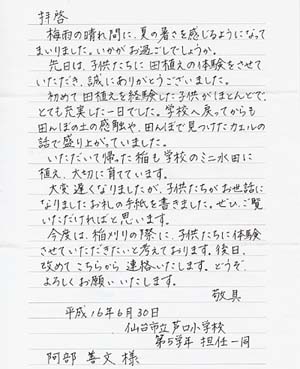 拝啓
梅雨の晴れ間に、夏の暑さを感じるようになって
まいりました。いかがお過ごしでしょうか。
先日は、子供たちに田植えの体験をさせて
いただき、誠にありがとうございました。
初めて田植えを経験した子供がほとんどで、
とても充実した一日でした。学校へ戻ってからも
田んぼの土の感触や、田んぼで見つけたカエルの
話で盛り上がっていました。
いただいて帰った稲も学校のミニ水田に
植え、大切に育てています。
大変遅くなりましたが、子供たちがお世話に
なりましたお礼の手紙を書きました。ぜひ、ご覧
いただければと思います。
今度は、稲刈りの際に、子供たちに体験
させていただきたいと考えております。後日、
改めてこちらから連絡いたします。どうぞ、
よろしくお願いいたします。
敬具
平成16年6月30日
仙台市立芦口小学校
第5学年 担任一同
阿部善文様